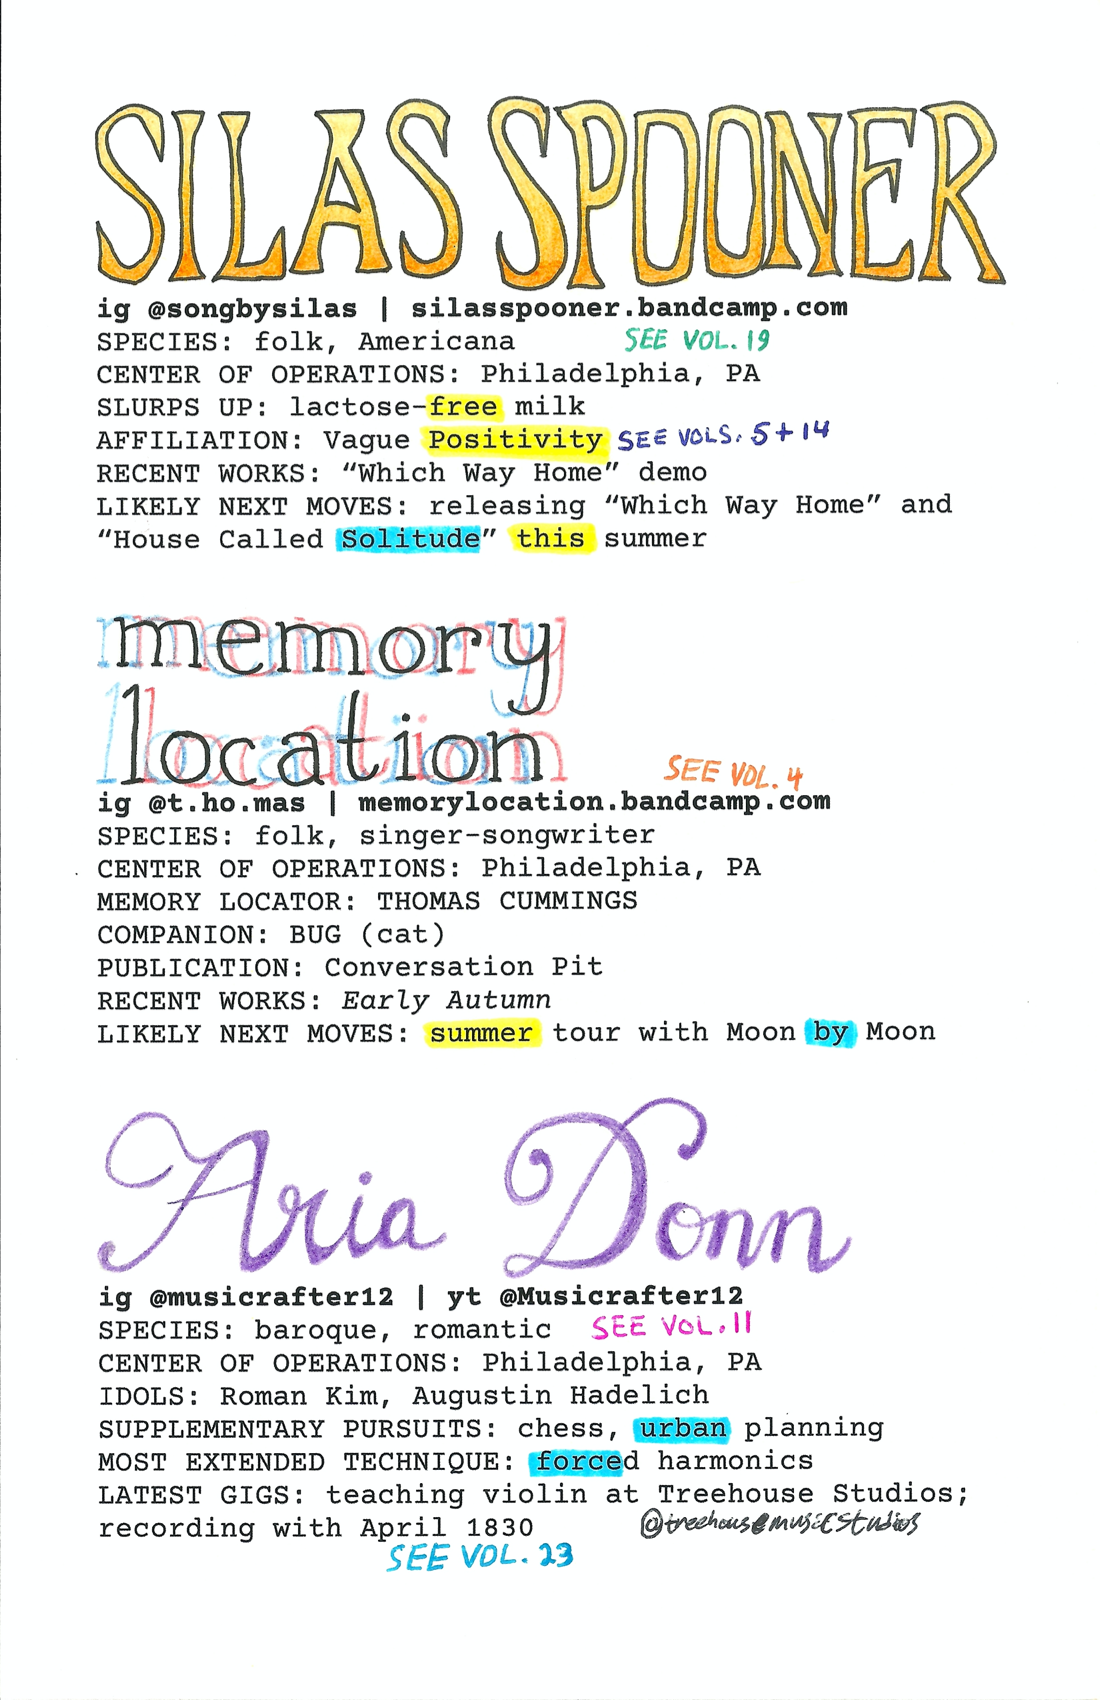 SILAS SPOONER
ig @songbysilas | silasspooner.bandcamp.com
SPECIES: folk, Americana SEE VOL. 19
CENTER OF OPERATIONS: Philadelphia, PA
SLURPS UP: lactose-free milk
AFFILIATION: Vague Positivity SEE VOLS. 5 + 14
RECENT WORKS: “Which Way Home” demo
LIKELY NEXT MOVES: releasing “Which Way Home” and
“House Called Solitude” this summer
memory
location
SEE VOL. 4
ig @t.ho.mas | memorylocation.bandcamp.com
SPECIES: folk, singer-songwriter
CENTER OF OPERATIONS: Philadelphia, PA
MEMORY LOCATOR: THOMAS CUMMINGS
COMPANION: BUG (cat)
PUBLICATION: Conversation Pit
RECENT WORKS: Early Autumn
LIKELY NEXT MOVES: summer tour with Moon by Moon
Aria Donn
ig @musicrafter12 | yt @Musicrafter12
SPECIES: baroque, romantic SEE VOL. 11
CENTER OF OPERATIONS: Philadelphia, PA
IDOLS: Roman Kim, Augustin Hadelich
SUPPLEMENTARY PURSUITS: chess, urban planning
MOST EXTENDED TECHNIQUE: forced harmonics
LATEST GIGS: teaching violin at Treehouse Studios;
recording with April 1830 @treehousemusicstudios
SEE VOL. 23